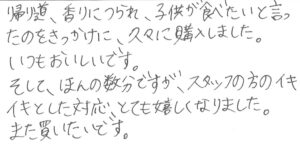 帰り道、香りにつられ、子供が食べたいと言っ
たのをきっかけに、久々に購入しました。
いつもおいしいです。
そして、ほんの数分ですが、スタッフの方のイキ
イキとした対応、とても嬉しくなりました。
また買いたいです。